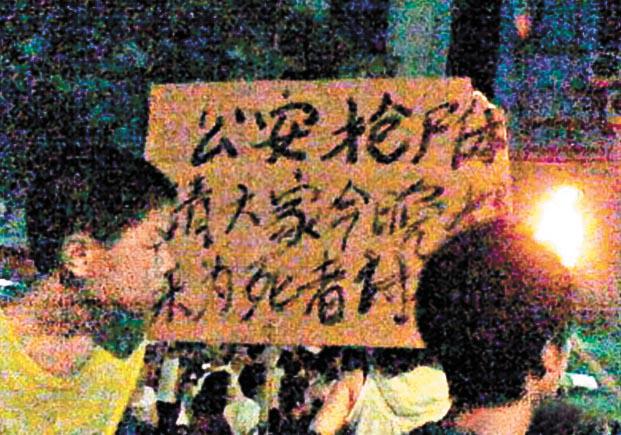 公安抢尸体
请大家今晚
来为死者讨